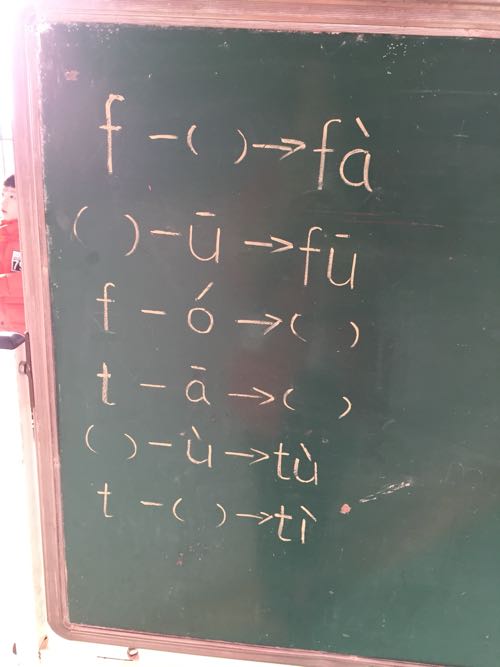 f -( )→fà
( )-ū→fū
f - ó→( )
t - ā→( )
( )-ù→tù
t -( )→tì